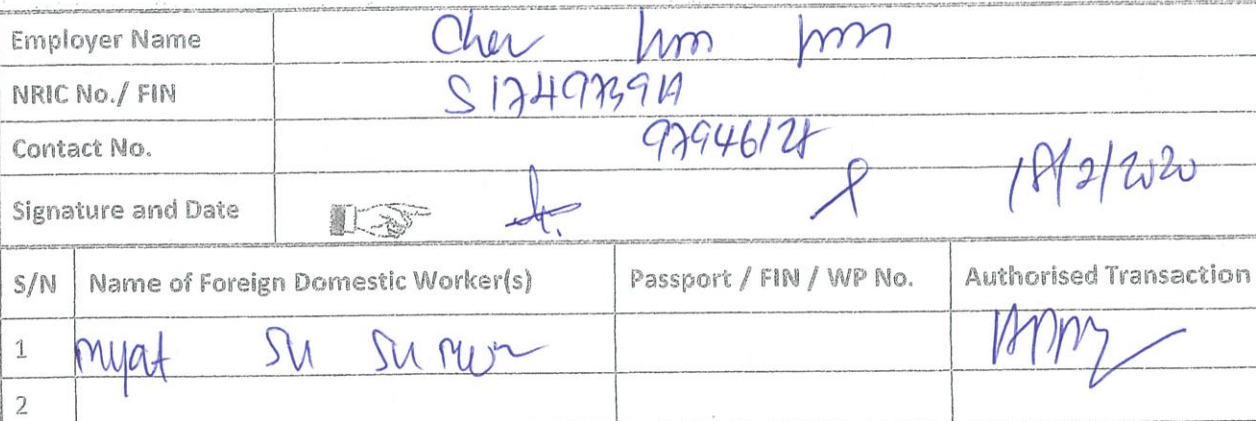 Employer Name Cher
NRIC No./ FIN S1749739A
Contact No.
Signature and Date 18/2/2020
S/N Name of Foreign Domestic Worker(s) Passport / FIN / WP No. Authorised Transaction
1 myat su su
2